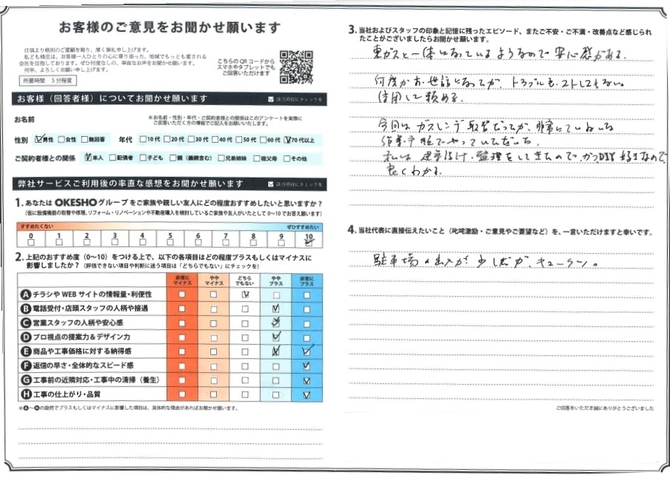 お客様のご意見をお聞かせ願います
こちらのQRコードから
スマホやタブレットでも
ご回答いただけます
所要時間 5分程度
お客様(回答者様)についてお聞かせ願います
該当枠にチェックを
お名前
※お名前・性別・年代・ご契約者様との関係はこのアンケートを実際に
ご回答いただく方の情報でご記入をお願いいたします。
性別 男性 女性 無回答 年代 10代 20代 30代 40代 50代 60代 70代以上
ご契約者様との関係 本人 配偶者 子ども 親(義親含む) 兄弟姉妹 祖父母 その他
弊社サービスご利用後の率直な感想をお聞かせ願います
該当枠にチェックを
1.あなたはOKESHOグループをご家族や親しい友人にどの程度おすすめしたいと思いますか?
(仮に設備機器の取替や修理、リフォーム・リノベーションや不動産購入を検討しているご家族や友人がいたとして0~10でお答え願います)
すすめたくない ぜひすすめたい
0 1 2 3 4 5 6 7 8 9 10
2.上記のおすすめ度(0~10)をつける上で、以下の各項目はどの程度プラスもしくはマイナスに
影響しましたか?(評価できない項目や判断に迷う項目は「どちらでもない」にチェック)
非常にマイナス ややマイナス どちらでもない ややプラス 非常にプラス
A チラシやWEBサイトの情報量・利便性
B 電話受付・店頭スタッフの人柄や接遇
C 営業スタッフの人柄や安心感
D プロ視点の提案力&デザイン力
E 商品や工事価格に対する納得感
F 返信の早さ・全体的なスピード感
G 工事前の近隣対応・工事中の清掃(養生)
H 工事の仕上がり・品質
※A~Hの設問でプラスもしくはマイナスに影響した項目は、具体的な理由があればお聞かせ願います。
3.当社およびスタッフの印象と記憶に残ったエピソード、またご不安・ご不満・改善点など感じられ
たことがございましたらお聞かせ願います
東ガスと一体になっているようなので安心感がある。
何度かお世話になったが、トラブルも
信用して頼める。
今回はガスレンジ取替だったが、非常にていねいな
作業手順でやっていただいた。
私は
良くわかる。
4.当社代表に直接伝えたいこと(叱咤激励・ご意見やご要望など)を、一言いただけますと幸いです。
駐車場の出入が少しだが、キュークツ。
ご回答をいただき誠にありがとうございました